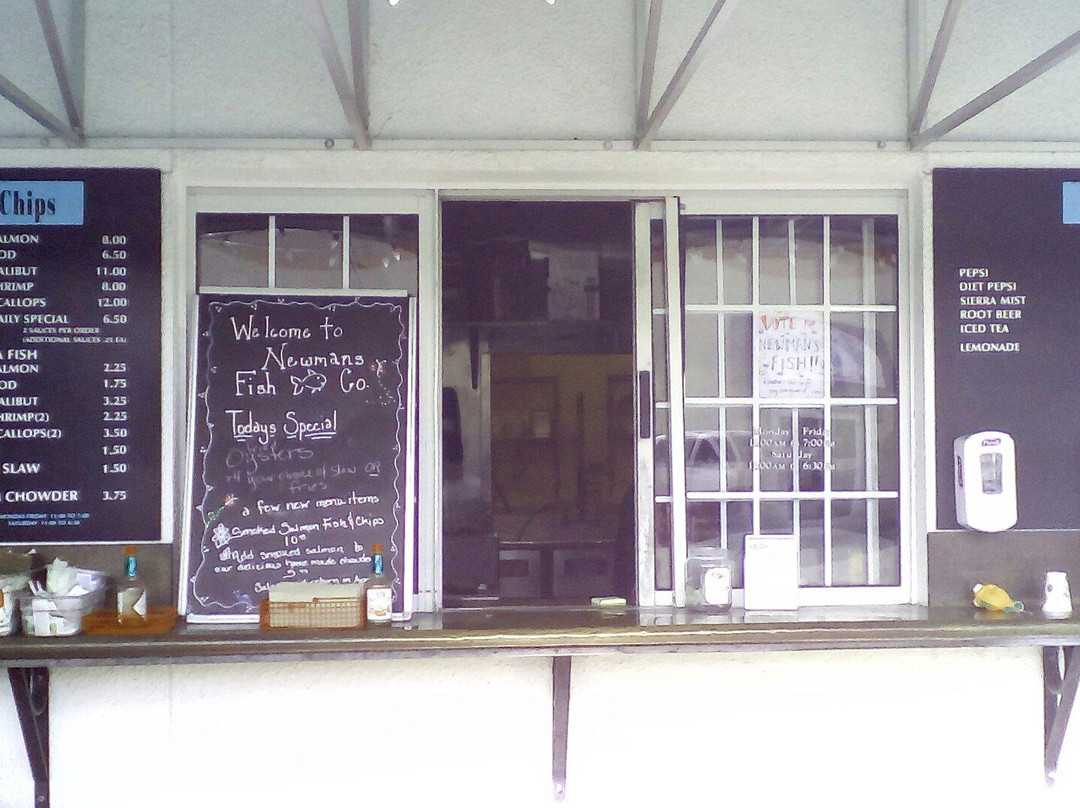 Chips
ALMON 8.00
OD 6.50
ALIBUT 11.00
HRIMP 8.00
CALLOPS 12.00
AILY SPECIAL 6.50
2 SAUCES PER ORDER
(ADDITIONAL SAUCES .25 EA)
A FISH
ALMON 2.25
OD 1.75
ALIBUT 3.25
HRIMP(2) 2.25
CALLOPS(2) 3.50
1.50
SLAW 1.50
CHOWDER 3.75
Welcome to
Newmans
Fish Co.
Todays Special
Oysters
your choice of slaw or
fries
a few new menu items
Smoked Salmon Fish & Chips
10
Add smoked salmon to
our delicious home made chowder
VOTE
NEWMAN'S
FISH!!
Monday Friday
Saturday
PEPSI
DIET PEPSI
SIERRA MIST
ROOT BEER
ICED TEA
LEMONADE